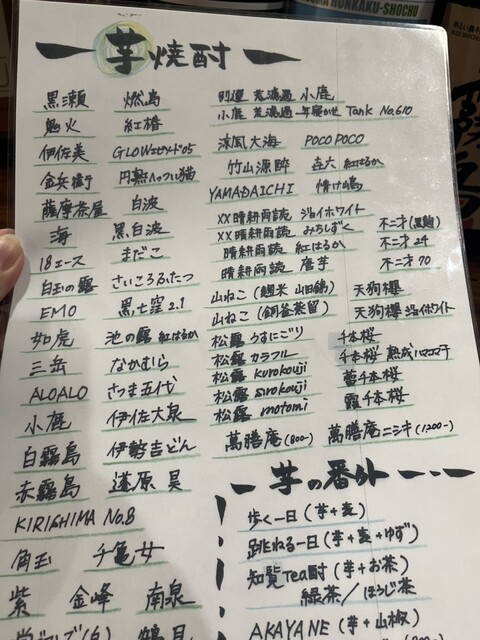 HONKAKU-SHOCHU
芋焼酎
黒瀬 燃島
魁火 紅椿
伊佐美 GLOWエピソード05
金兵衛
薩摩茶屋 白波
海 黒白波
18エース まだこ
白玉の露 さいころふたつ
EMO 黒七窪 2.1
如虎 池の露 紅はるか
三岳 なかむら
ALOALO さつま五代
小鹿 伊佐大泉
白霧島 伊勢吉どん
赤霧島 蓬原
KIRISHIMA No.8
角玉 千亀女
紫 金峰 南泉
鶴見
別選 荒濾過 小鹿
小鹿 荒濾過 一年寝かせ Tank No.610
涼風大海 POCO POCO
竹山源酔 㐂六 紅はるか
YAMADAICHI 情け嶋
××晴耕雨読 ジョイホワイト
××晴耕雨読 みちしずく 不二才(黒麹)
晴耕雨読 紅はるか 不二才 24
晴耕雨読 唐芋 不二才 70
山ねこ (麹米 山田錦) 天狗櫻
山ねこ (銅釜蒸留) 天狗櫻 ジョイホワイト
松露 うすにごり 千本桜
松露 カラフル 千本桜 熟成ハマコマチ
松露 kurokouji 蕾千本桜
松露 sirokouji 霞千本桜
松露 motomi
萬膳庵 (800-) 萬膳庵ニシキ (1200-)
芋の番外
歩く一日 (芋+麦)
跳ねる一日 (芋+麦+ゆず)
知覧Tea酎 (芋+お茶)
緑茶/ほうじ茶
AKAYANE (芋+山椒)